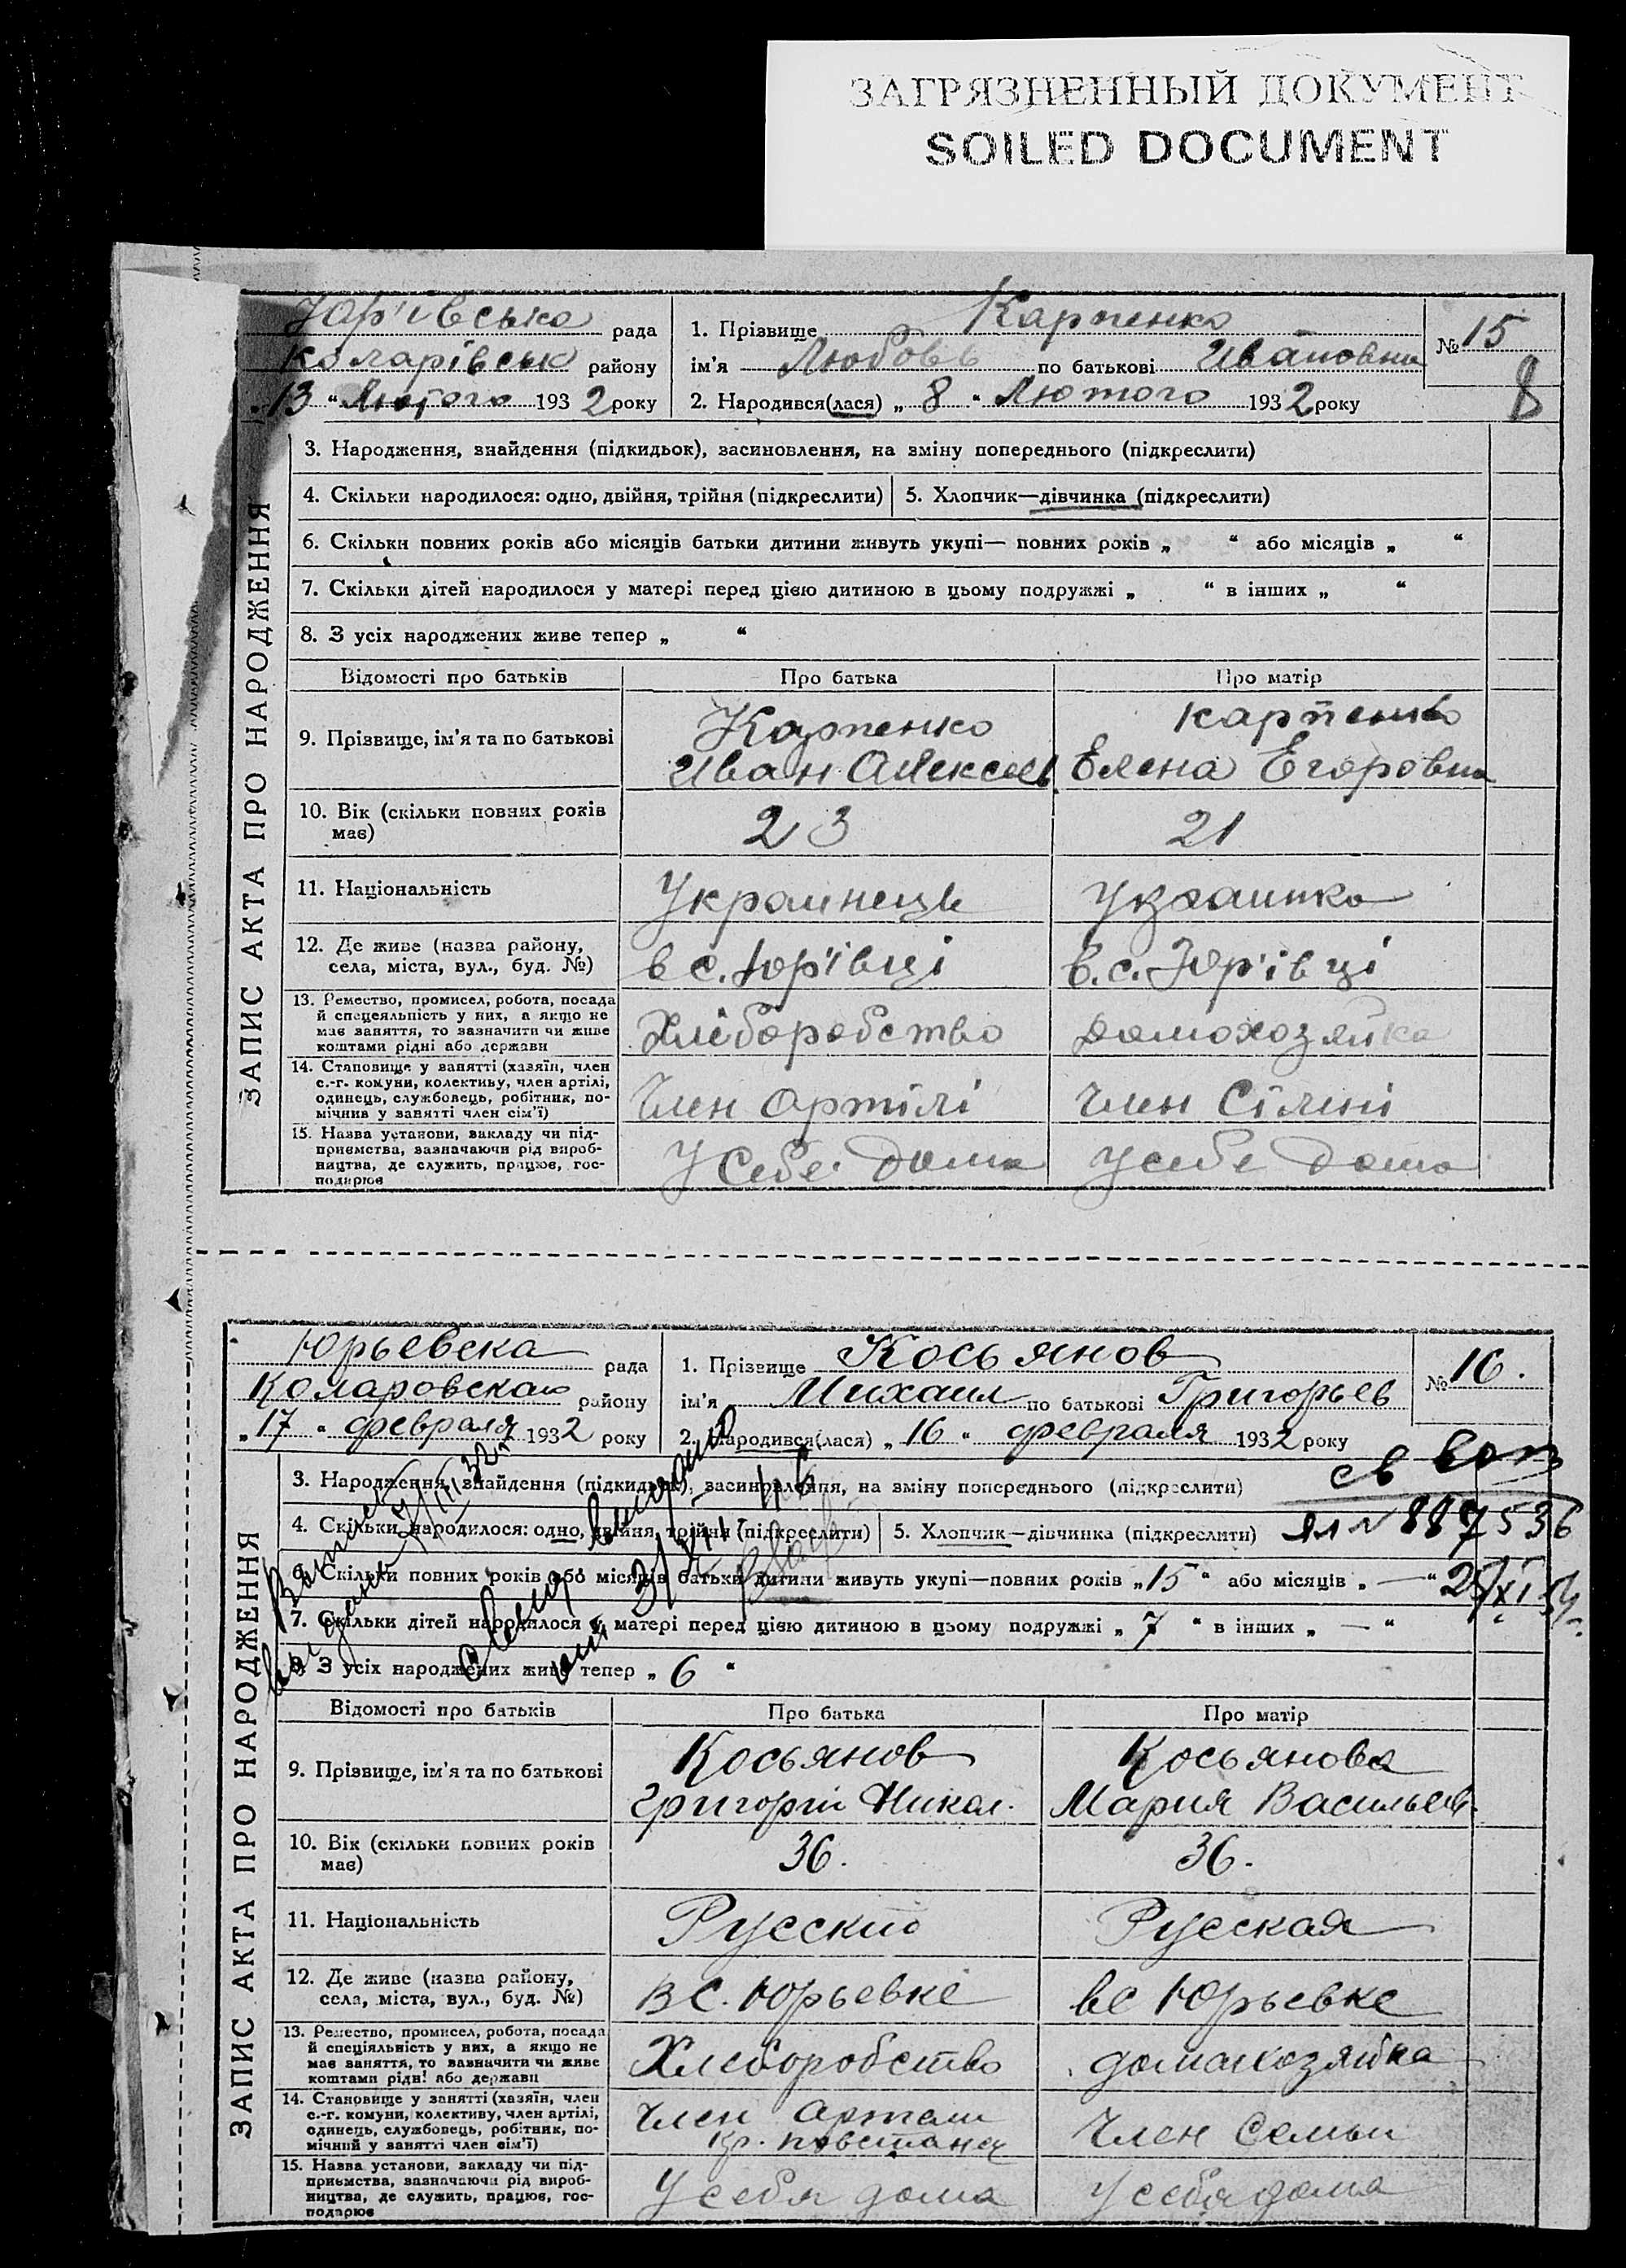 ЗАГРЯЗНЕННЫЙ ДОКУМЕНТ
SOILED DOCUMENT
ЗАПИС АКТА ПРО НАРОДЖЕННЯ
Юр'івсько рада
Коларівськ району
„13 “ Лютого 1932 року
1. Прізвище Карпенко
ім'я Любовь по батькові Ивановна
2. Народився(лася) „ 8 “ Лютого 1932 року
№ 15
8
3. Народження, знайдення (підкидьок), засиновлення, на зміну попереднього (підкреслити)
4. Скільки народилося: одно, двійня, трійня (підкреслити) 5. Хлопчик—дівчинка (підкреслити)
6. Скільки повних років або місяців батьки дитини живуть укупі— повних років „ “ або місяців „ “
7. Скільки дітей народилося у матері перед цією дитиною в цьому подружжі „ “ в інших „ “
8. З усіх народжених живе тепер „ “
Відомості про батьків Про батька Про матір
9. Прізвище, ім'я та по батькові
Карпенко
Иван Алексеев
Карпенко
Елена Егоровна
10. Вік (скільки повних років
має)
23 21
11. Національність Украинець Украинка
12. Де живе (назва району,
села, міста, вул., буд. №)
в с. Юр'івці в. с. Юр'івці
13. Ремество, промисел, робота, посада
й спецеяльність у них, а якщо не
має заняття, то зазначити чи живе
коштами рідні або держави
Хліборобство домохозяйка
14. Становище у занятті (хазяїн, член
с.-г. комуни, колективу, член артілі,
одинець, службовець, робітник, по-
мічник у занятті член сім'ї)
Член Артілі Член Сімні
15. Назва установи, закладу чи під-
приємства, зазначаючи рід вироб-
ництва, де служить, працює, гос-
подарює
У себе дома У себе дома
ЗАПИС АКТА ПРО НАРОДЖЕННЯ
Юрьевска рада
Коларовская району
„17 “ февраля 1932 року
1. Прізвище Косьянов
ім'я Михаил по батькові Григорьев
2. Народився(лася) „ 16 “ февраля 1932 року
№ 16.
3. Народження, знайдення (підкидьок), засиновлення, на зміну попереднього (підкреслити)
4. Скільки народилося: одно, двійня, трійня (підкреслити) 5. Хлопчик—дівчинка (підкреслити)
6. Скільки повних років або місяців батьки дитини живуть укупі—повних років „15“ або місяців „ — “
7. Скільки дітей народилося у матері перед цією дитиною в цьому подружжі „ 7 “ в інших „ — “
8. З усіх народжених живе тепер „ 6 “
Відомості про батьків Про батька Про матір
9. Прізвище, ім'я та по батькові
Косьянов
Григорій Никол.
Косьянова
Мария Васильев.
10. Вік (скільки повних років
має)
36. 36.
11. Національність Русский Русская
12. Де живе (назва району,
села, міста, вул., буд. №)
в с. Юрьевке вс Юрьевке
13. Ремество, промисел, робота, посада
й спеціяльність у них, а якщо не
має заняття, то зазначити чи живе
коштами рідні або держави
Хлеборобство домахозяйка
14. Становище у занятті (хазяїн, член
с.-г. комуни, колективу, член артілі,
одинець, службовець, робітник, по-
мічний у занятті член сім'ї)
Член Артели
Кр. повстанец
Член Семьи
15. Назва установи, закладу чи під-
приємства, зазначаючи рід вироб-
ництва, де служить, працює, гос-
подарює
У себя дома У себя дома